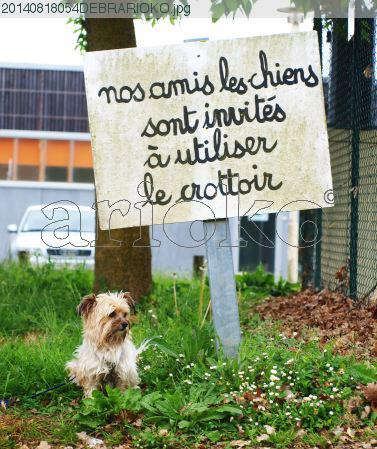 20140818054DEBRARIOKO.jpg
nos amis les chiens
sont invités
à utiliser
le crottoir
© arioko ®